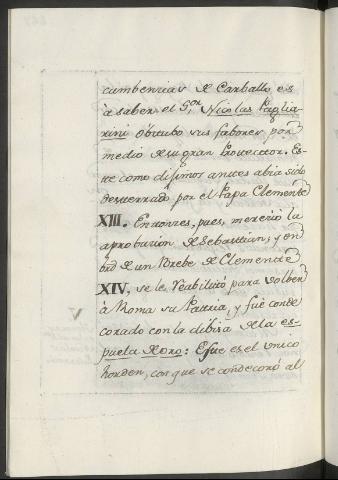 cumbencias de Carballo, es
à saber, el S.ᵒʳ Nicolas Paglia-
rini óbtubo sus fabores por
medio de su gran Protector. Es-
te como diſimos antes abia sido
desterrado por el Papa Clemente
XIII. Entonces, pues, mereció la
aprobacion de Sebastian; y en
de un Brebe de Clemente
XIV, se le reabilitó para volber
à Roma su Patria, y fué conde-
corado con la dibisa de la es-
puela de oro: Este es el unico
horden, con que se condecoró al